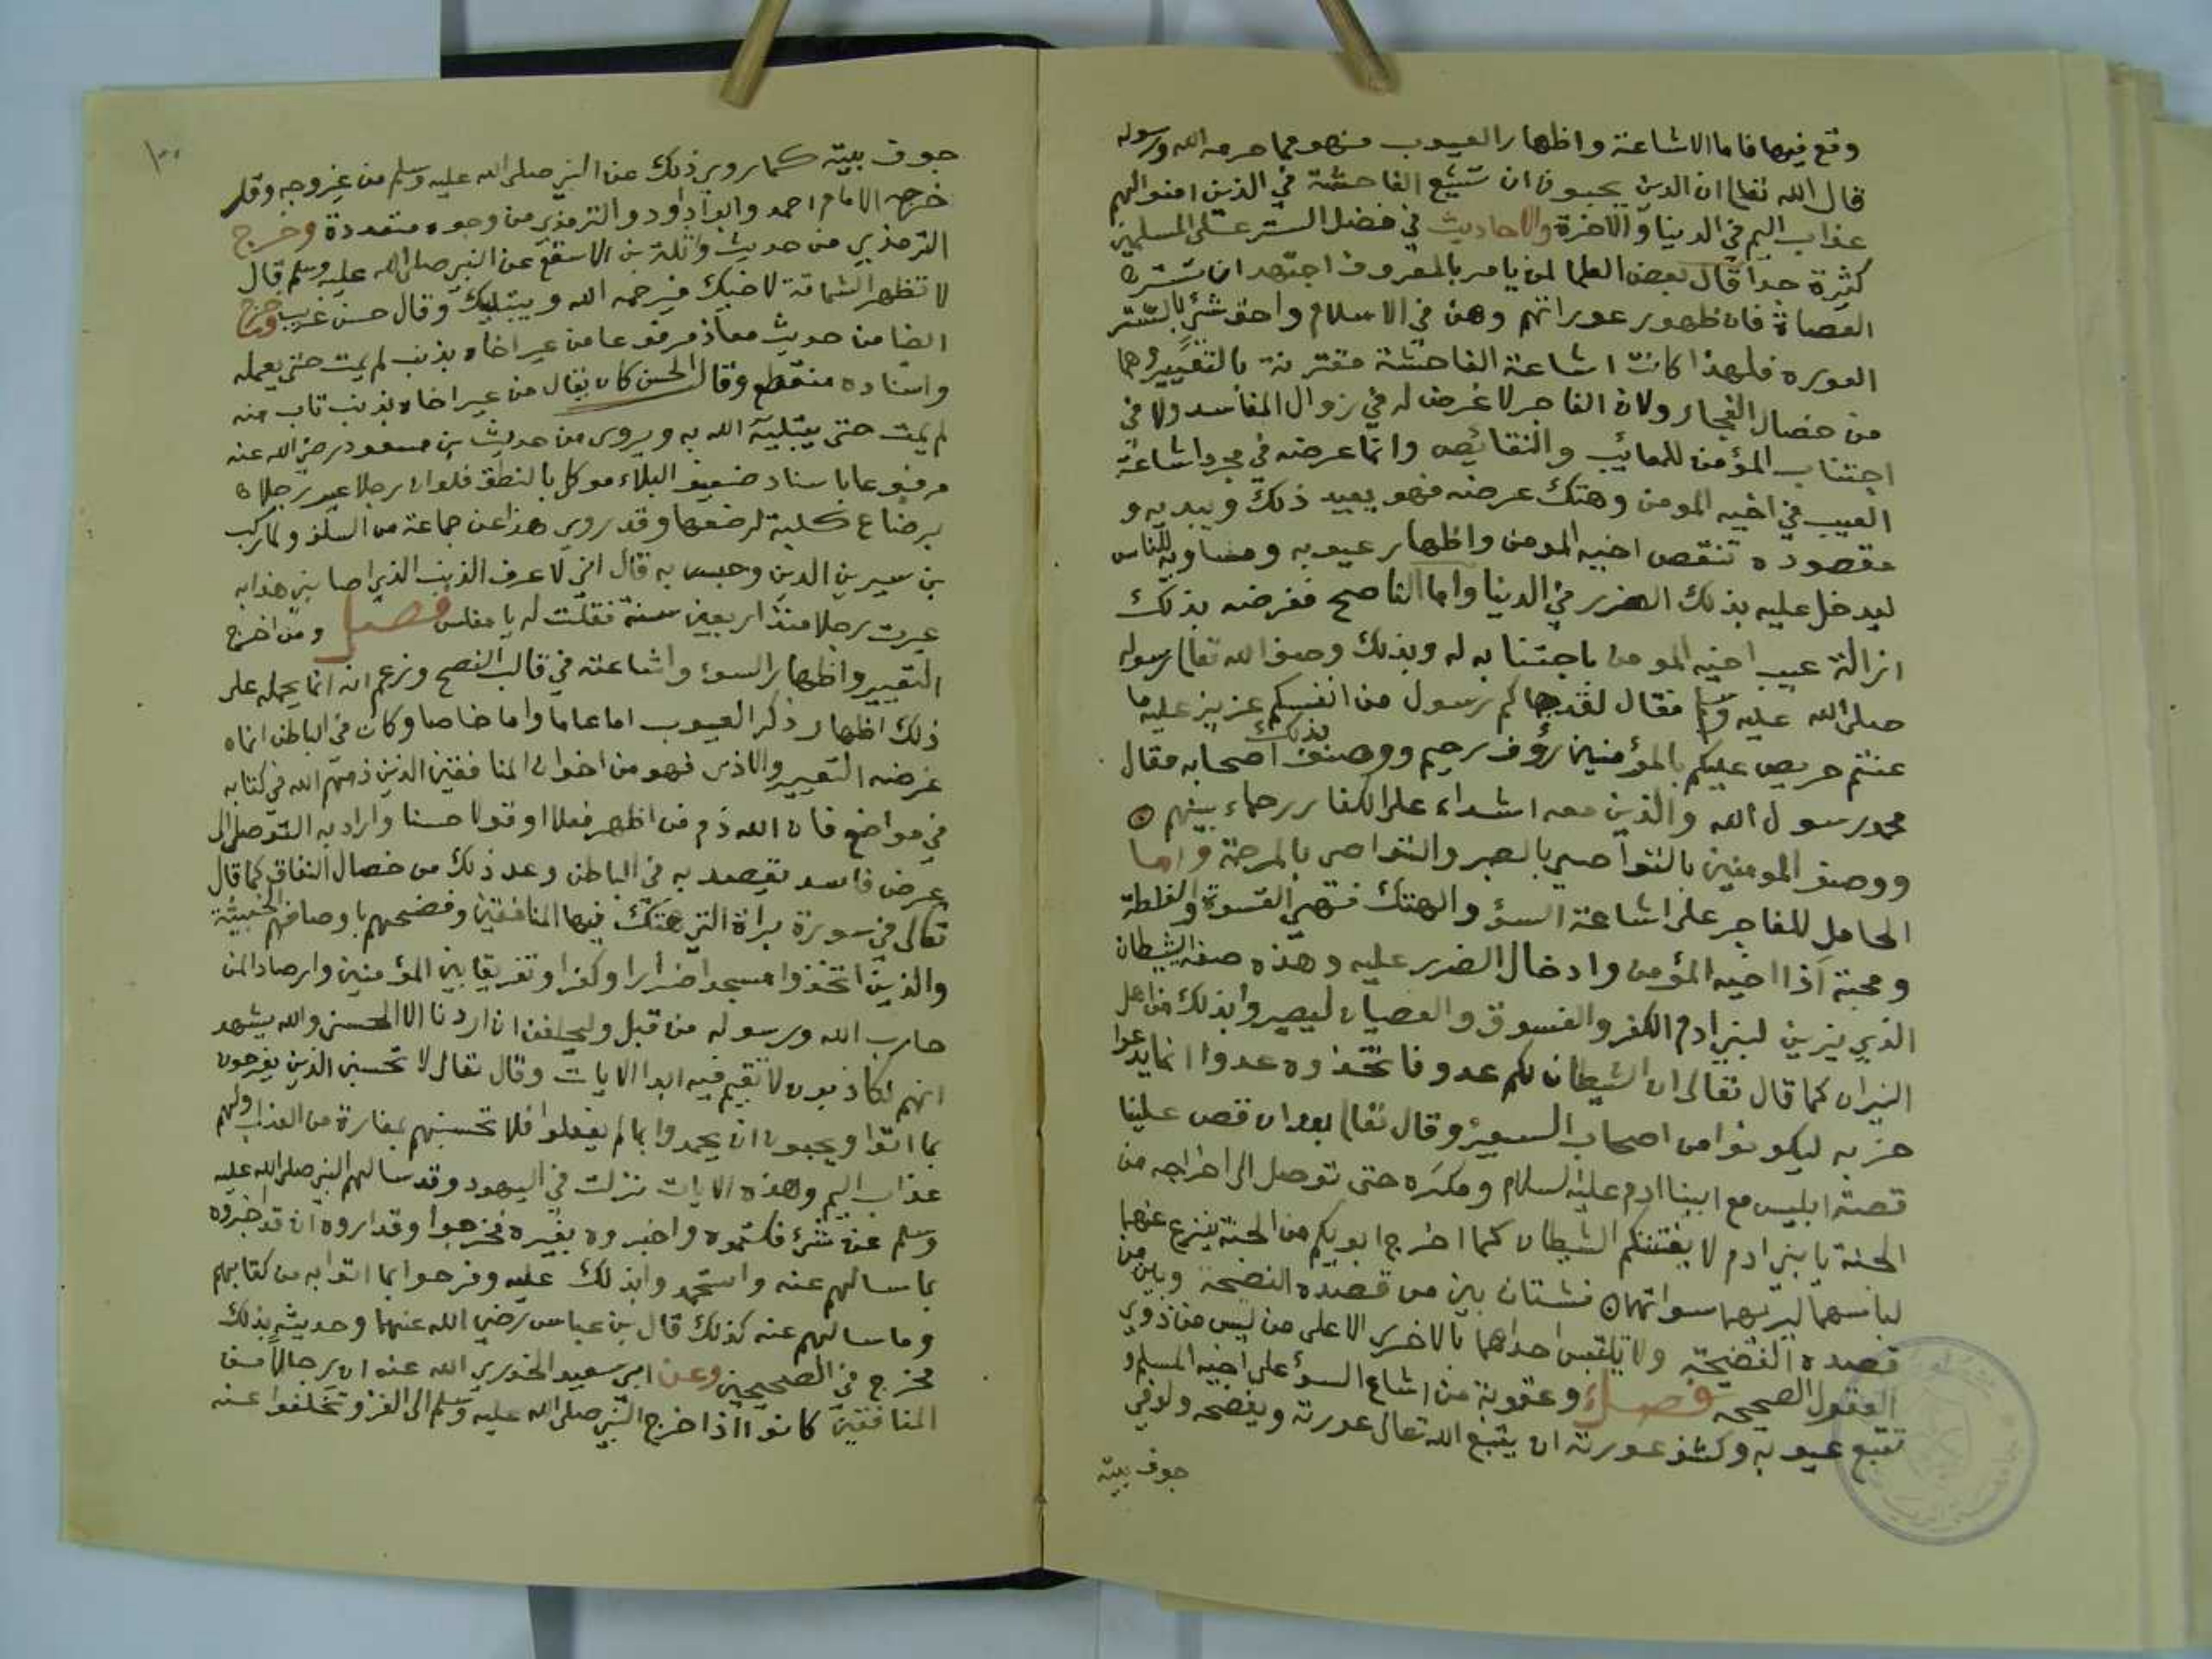 وقع فيها فاما الاشاعة واظهار العيوب فهو مما حرمه الله ورسوله
قال الله تعالى ان الذين يحبون ان تشيع الفاحشة في الذين امنوا لهم
عذاب اليم في الدنيا والاخرة والاحاديث في فضل الستر على المسلمين
كثيرة جدا قال بعض العلما لمن يامر بالمعروف اجتهد ان تستر
العصاة فان ظهور عوراتهم وهن في الاسلام واحق شئ بالستر
العوره فلهذا كانت اشاعة الفاحشة مقترنة بالتعيير وهما
من خصال الفجار ولان الفاجر لا غرض له في زوال المفاسد ولا في
اجتناب المؤمن للمعائب والنقائص وانما غرضه في مجرد اشاعة
العيب في اخيه المومن وهتك عرضه فهو يعيد ذلك ويبديه و
مقصوده تنقص اخيه المومن واظهار عيوبه ومساويه للناس
ليدخل عليه بذلك الضرر في الدنيا واما الناصح فغرضه بذلك
ازالة عيب اخيه المومن باجتنابه له وبذلك وصف الله تعالى رسوله
صلى الله عليه وسلم فقال لقد جاكم رسول من انفسكم عزيز عليه ما
عنتم حريص عليكم بالمؤمنين رؤف رحيم ووصف بذلك اصحابه فقال
محمد رسول الله والذين معه اشداء على الكفار رحماء بينهم
ووصف المومنين بالتواصي بالصبر والتواصي بالمرحمة واما
الحامل للفاجر على اشاعة السؤ والهتك فهي القسوة والغلظة
ومحبة اذا اخيه المؤمن وادخال الضرر عليه وهذه صفة الشيطان
الذي يزين لبني ادم الكفر والفسوق والعصيان ليصيروا بذلك من اهل
النيران كما قال تعالى ان الشيطان لكم عدو فاتخذوه عدوا انما يدعوا
حزبه ليكونوا من اصحاب السعير وقال تعالى بعد ان قص علينا
قصة ابليس مع ابينا ادم عليه السلام ومكره حتى توصل الى اخراجه من
الجنة يا بني ادم لا يفتننكم الشيطان كما اخرج ابويكم من الجنة ينزع عنهما
لباسهما ليريهما سواتهما فشتان بين من قصده النصحة وبين من
قصده الفضيحة ولا يلتبس احداهما بالاخرى الا على من ليس من ذوي
العقول الصحيحه فصل وعقوبة من اشاع السؤ على اخيه المسلم و
تتبع عيوبه وكشف عورته ان يتبع الله تعالى عورته ويفضحه ولو في
جوف بيته
١٠٠
جوف بيته كما روي ذلك عن النبي صلى الله عليه وسلم من غير وجه وقد
خرجه الامام احمد وابو داود والترمذي من وجوه متعددة وخرج
الترمذي من حديث واثلة بن الاسقع عن النبي صلى الله عليه وسلم قال
لا تظهر الشماتة لاخيك فيرحمه الله ويبتليك وقال حسن غريب وخرج
ايضا من حديث معاذ مرفوعا من عير اخاه بذنب لم يمت حتى يعمله
واسناده منقطع وقال الحسن كان يقال من عير اخاه بذنب تاب منه
لم يمت حتى يبتليه الله به ويروى من حديث بن مسعود رضي الله عنه
مرفوعا باسناد ضعيف البلاء موكل بالنطق فلو ان رجلا عير رجلا
برضاع كلبة لرضعها وقد روي هذا عن جماعة من السلف ولما ركب
بن سيرين الدين وحبس به قال اني لاعرف الذنب الذي اصابني هذا به
عيرت رجلا منذ اربعين سنة فقلت له يا مفلس فصل ومن اخرج
التعيير واظهار السوء واشاعته في قالب النصح وزعم انه انما يحمله على
ذلك اظهار ذكر العيوب اما عاما واما خاصا وكان في الباطن انما
غرضه التعيير والاذى فهو من اخوان المنافقين الذين ذمهم الله في كتابه
في مواضع فان الله ذم من اظهر فعلا او قولا حسنا واراد به التوصل الى
غرض فاسد يقصد به في الباطن وعد ذلك من خصال النفاق كما قال
تعالى في سورة براة التي هتك فيها المنافقين وفضحهم باوصافهم الخبيثة
والذين اتخذوا مسجدا ضرارا وكفرا وتفريقا بين المؤمنين وارصادا لمن
حارب الله ورسوله من قبل وليحلفن ان اردنا الا الحسنى والله يشهد
انهم لكاذبون لا تقم فيه ابدا الايات وقال تعالى لا تحسبن الذين يفرحون
بما اتوا ويحبون ان يحمدوا بما لم يفعلوا فلا تحسبنهم بمفازة من العذاب ولهم
عذاب اليم وهذه الايات نزلت في اليهود وقد سالهم النبي صلى الله عليه
وسلم عن شئ فكتموه واخبروه بغيره فخرجوا وقد اروه ان قد اخبروه
بما سالهم عنه واستحمدوا بذلك عليه وفرحوا بما اتوا به من كتابهم
وما سالهم عنه كذلك قال بن عباس رضي الله عنهما وحديثه بذلك
مخرج في الصحيحين وعن ابي سعيد الخدري الله عنه ان رجالا من
المنافقين كانوا اذا خرج النبي صلى الله عليه وسلم الى الغزو تخلفوا عنه